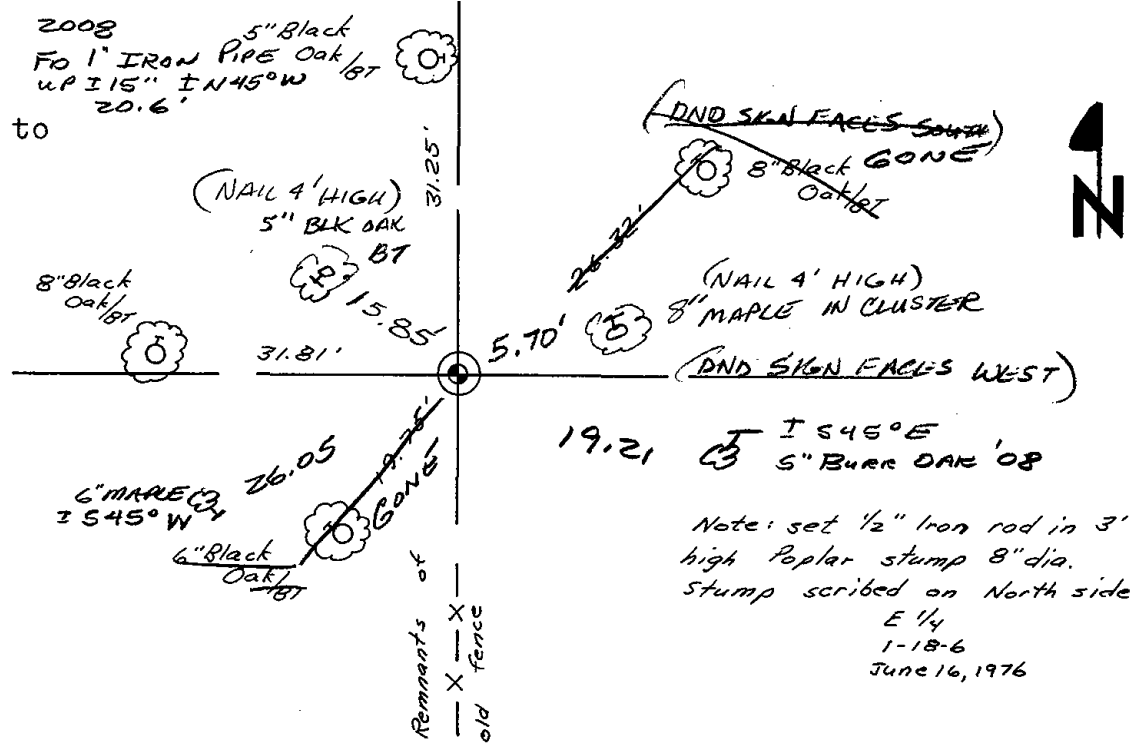 2008
FD 1" IRON PIPE
UP ± 15" ± N45°W
20.6'
to
5"Black
Oak/BT
31.25'
(DND SIGN FACES SOUTH)
GONE
8"Black
Oak/BT
26.32'
N
(NAIL 4' HIGH)
5" BLK OAK
BT
15.85'
8"Black
Oak/BT
31.81'
5.70'
(NAIL 4' HIGH)
8" MAPLE IN CLUSTER
(DND SIGN FACES WEST)
19.21
± S45°E
5" BURR OAK '08
6" MAPLE
± S45°W
26.05
19.75'
GONE
6"Black
Oak/BT
Remnants of
old fence
Note: set 1/2" Iron rod in 3'
high Poplar stump 8"dia.
Stump scribed on North side
E 1/4
1-18-6
June 16, 1976